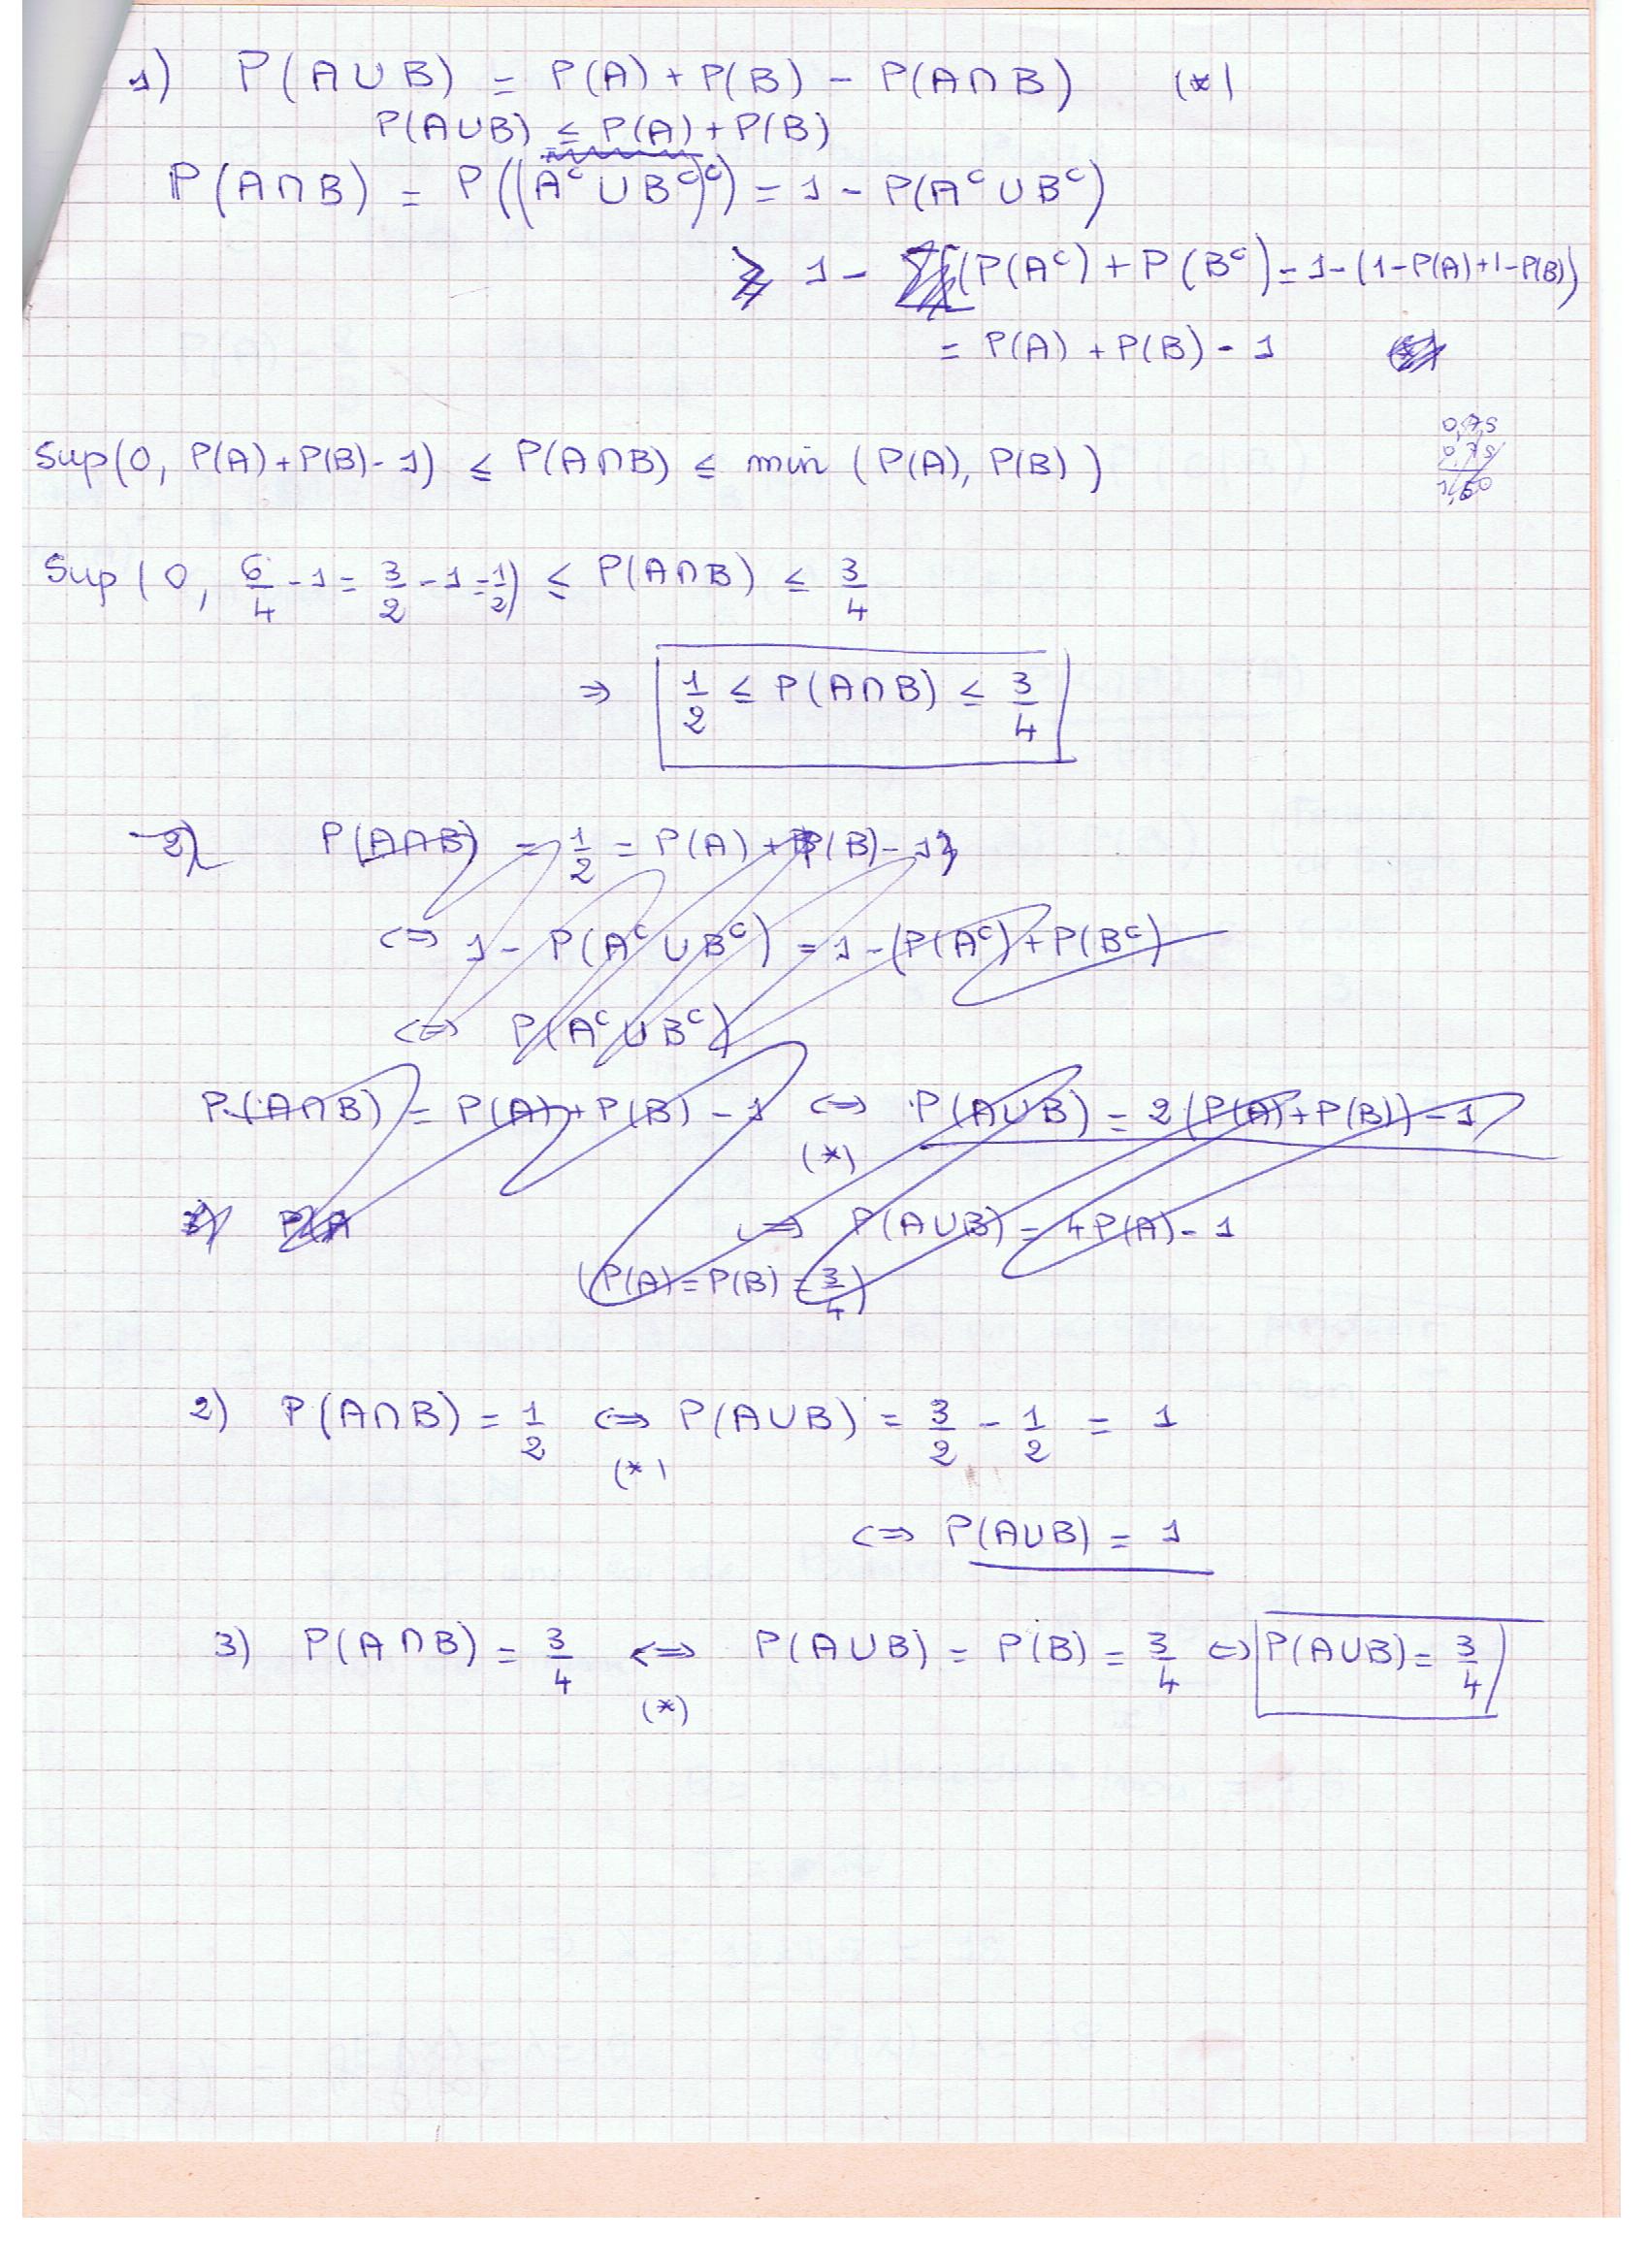 1) P(A∪B) = P(A) + P(B) - P(A∩B) (*)
P(A∪B) ≤ P(A) + P(B)
P(A∩B) = P((A^c ∪ B^c)^c) = 1 - P(A^c ∪ B^c)
≥ 1 - (P(A^c) + P(B^c) = 1 - (1 - P(A) + 1 - P(B))
= P(A) + P(B) - 1
0,75
0,75
1,50
Sup(0, P(A) + P(B) - 1) ≤ P(A∩B) ≤ min (P(A), P(B))
Sup(0, 6/4 - 1 = 3/2 - 1 = 1/2) ≤ P(A∩B) ≤ 3/4
⇒ 1/2 ≤ P(A∩B) ≤ 3/4
2) P(A∩B) = 1/2 = P(A) + P(B) - 1
⇔ 1 - P(A^c ∪ B^c) = 1 - (P(A^c) + P(B^c)
⇔ P(A^c ∪ B^c)
P(A∩B) = P(A) + P(B) - 1 ⇔ P(A∪B) = 2(P(A) + P(B)) - 1
(*)
3) P(A ⇒ P(A∪B) = 4P(A) - 1
(P(A) = P(B) = 3/4)
2) P(A∩B) = 1/2 ⇔ P(A∪B) = 3/2 - 1/2 = 1
(*)
⇔ P(A∪B) = 1
3) P(A∩B) = 3/4 ⇔ P(A∪B) = P(B) = 3/4 ⇔ P(A∪B) = 3/4
(*)